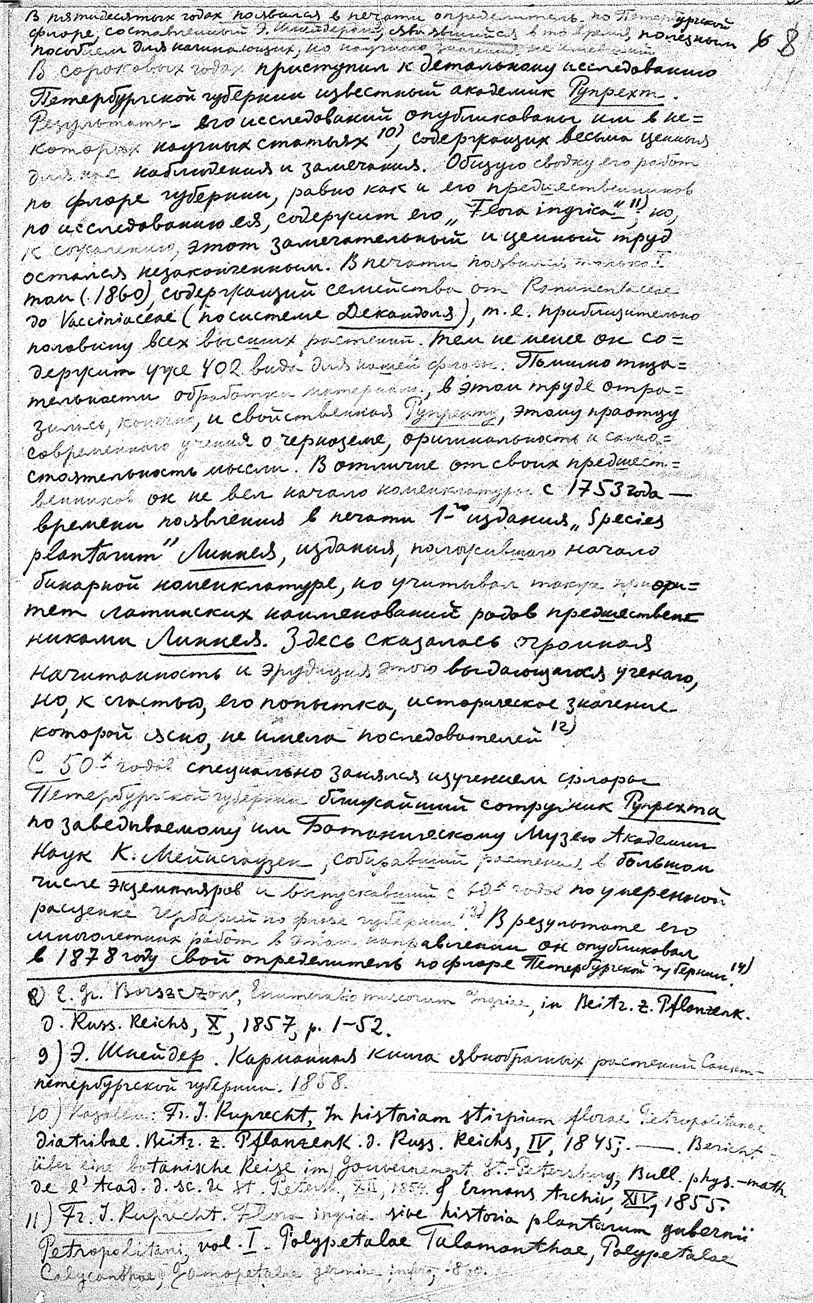 В пятидесятых годах появился в печати определитель по Петербургской
флоре, составленный Э. Шнейдером, являвшийся в то время полезным
пособием для начинающих, но научного значения не имевший
8
В сороковых годах приступил к детальному исследованию
Петербургской губернии известный академик Рупрехт.
Результаты его исследований опубликованы им в не=
которых научных статьях 10), содержащих весьма ценныя
для нас наблюдения и замечания. Общую сводку его работ
по флоре губернии, равно как и его предшественников
по исследованию ея, содержит его „Flora ingrica" 11), но,
к сожалению, этот замечательный и ценный труд
остался незаконченным. В печати появился только I
том (1860), содержащий семейства от Ranunculaceae
до Vacciniaceae (по системе Декандоля), т.е. приблизительно
половину всех высших растений. Тем не менее он со=
держит уже 402 вида для нашей флоры. Помимо тща=
тельности обработки материала, в этом труде отра=
зилась, конечно, и свойственная Рупрехту, этому праотцу
современного учения о черноземе, оригинальность и само=
стоятельность мысли. В отличие от своих предшест=
венников он не вел начало номенклатуры с 1753 года —
времени появления в печати 1-го издания „Species
plantarum" Линнея, издания, положившаго начало
бинарной номенклатуре, но учитывал также приори=
тет латинских наименований родов предшествен
никами Линнея. Здесь сказалась огромная
начитанность и эрудиция этого выдающагося ученаго,
но, к счастью, его попытка, историческое значение
которой ясно, не имела последователей 12)
С 50х годов специально занялся изучением флоры
Петербургской губернии ближайший сотрудник Рупрехта
по заведываемому им Ботаническому Музею Академии
Наук К. Мейнсгаузен, собиравший растения в большом
числе экземпляров и выпускавший с 60х годов по умеренной
расценке гербарий по флоре губернии 13). В результате его
многолетних работ в этом направлении он опубликовал
в 1878 году свой определитель по флоре Петербургской губернии. 14)
8) E. Gr. Borszczow, Enumeratio muscorum Ingriae, in Beitr. z. Pflanzenk.
d. Russ. Reichs, X, 1857, p. 1-52.
9) Э. Шнейдер. Карманная книга явнобрачных растений Санкт-
петербургской губернии. 1858.
10) Fr. J. Ruprecht, In historiam stirpium florae Petropolitanae
diatribae. Beitr. z. Pflanzenk. d. Russ. Reichs, IV, 1845; —. Bericht
über eine botanische Reise im Gouvernement St.-Petersburg, Bull. phys.-math.
de l'Acad. d. sc. de St. Petersb., XII, 1854 & Ermans Archiv, XIV, 1855.
11) Fr. J. Ruprecht. Flora ingrica sive historia plantarum gubernii
Petropolitani, vol. I. Polypetalae Talamanthae, Polypetalae
Calycanthae, Gamopetalae germine infero, 1860.